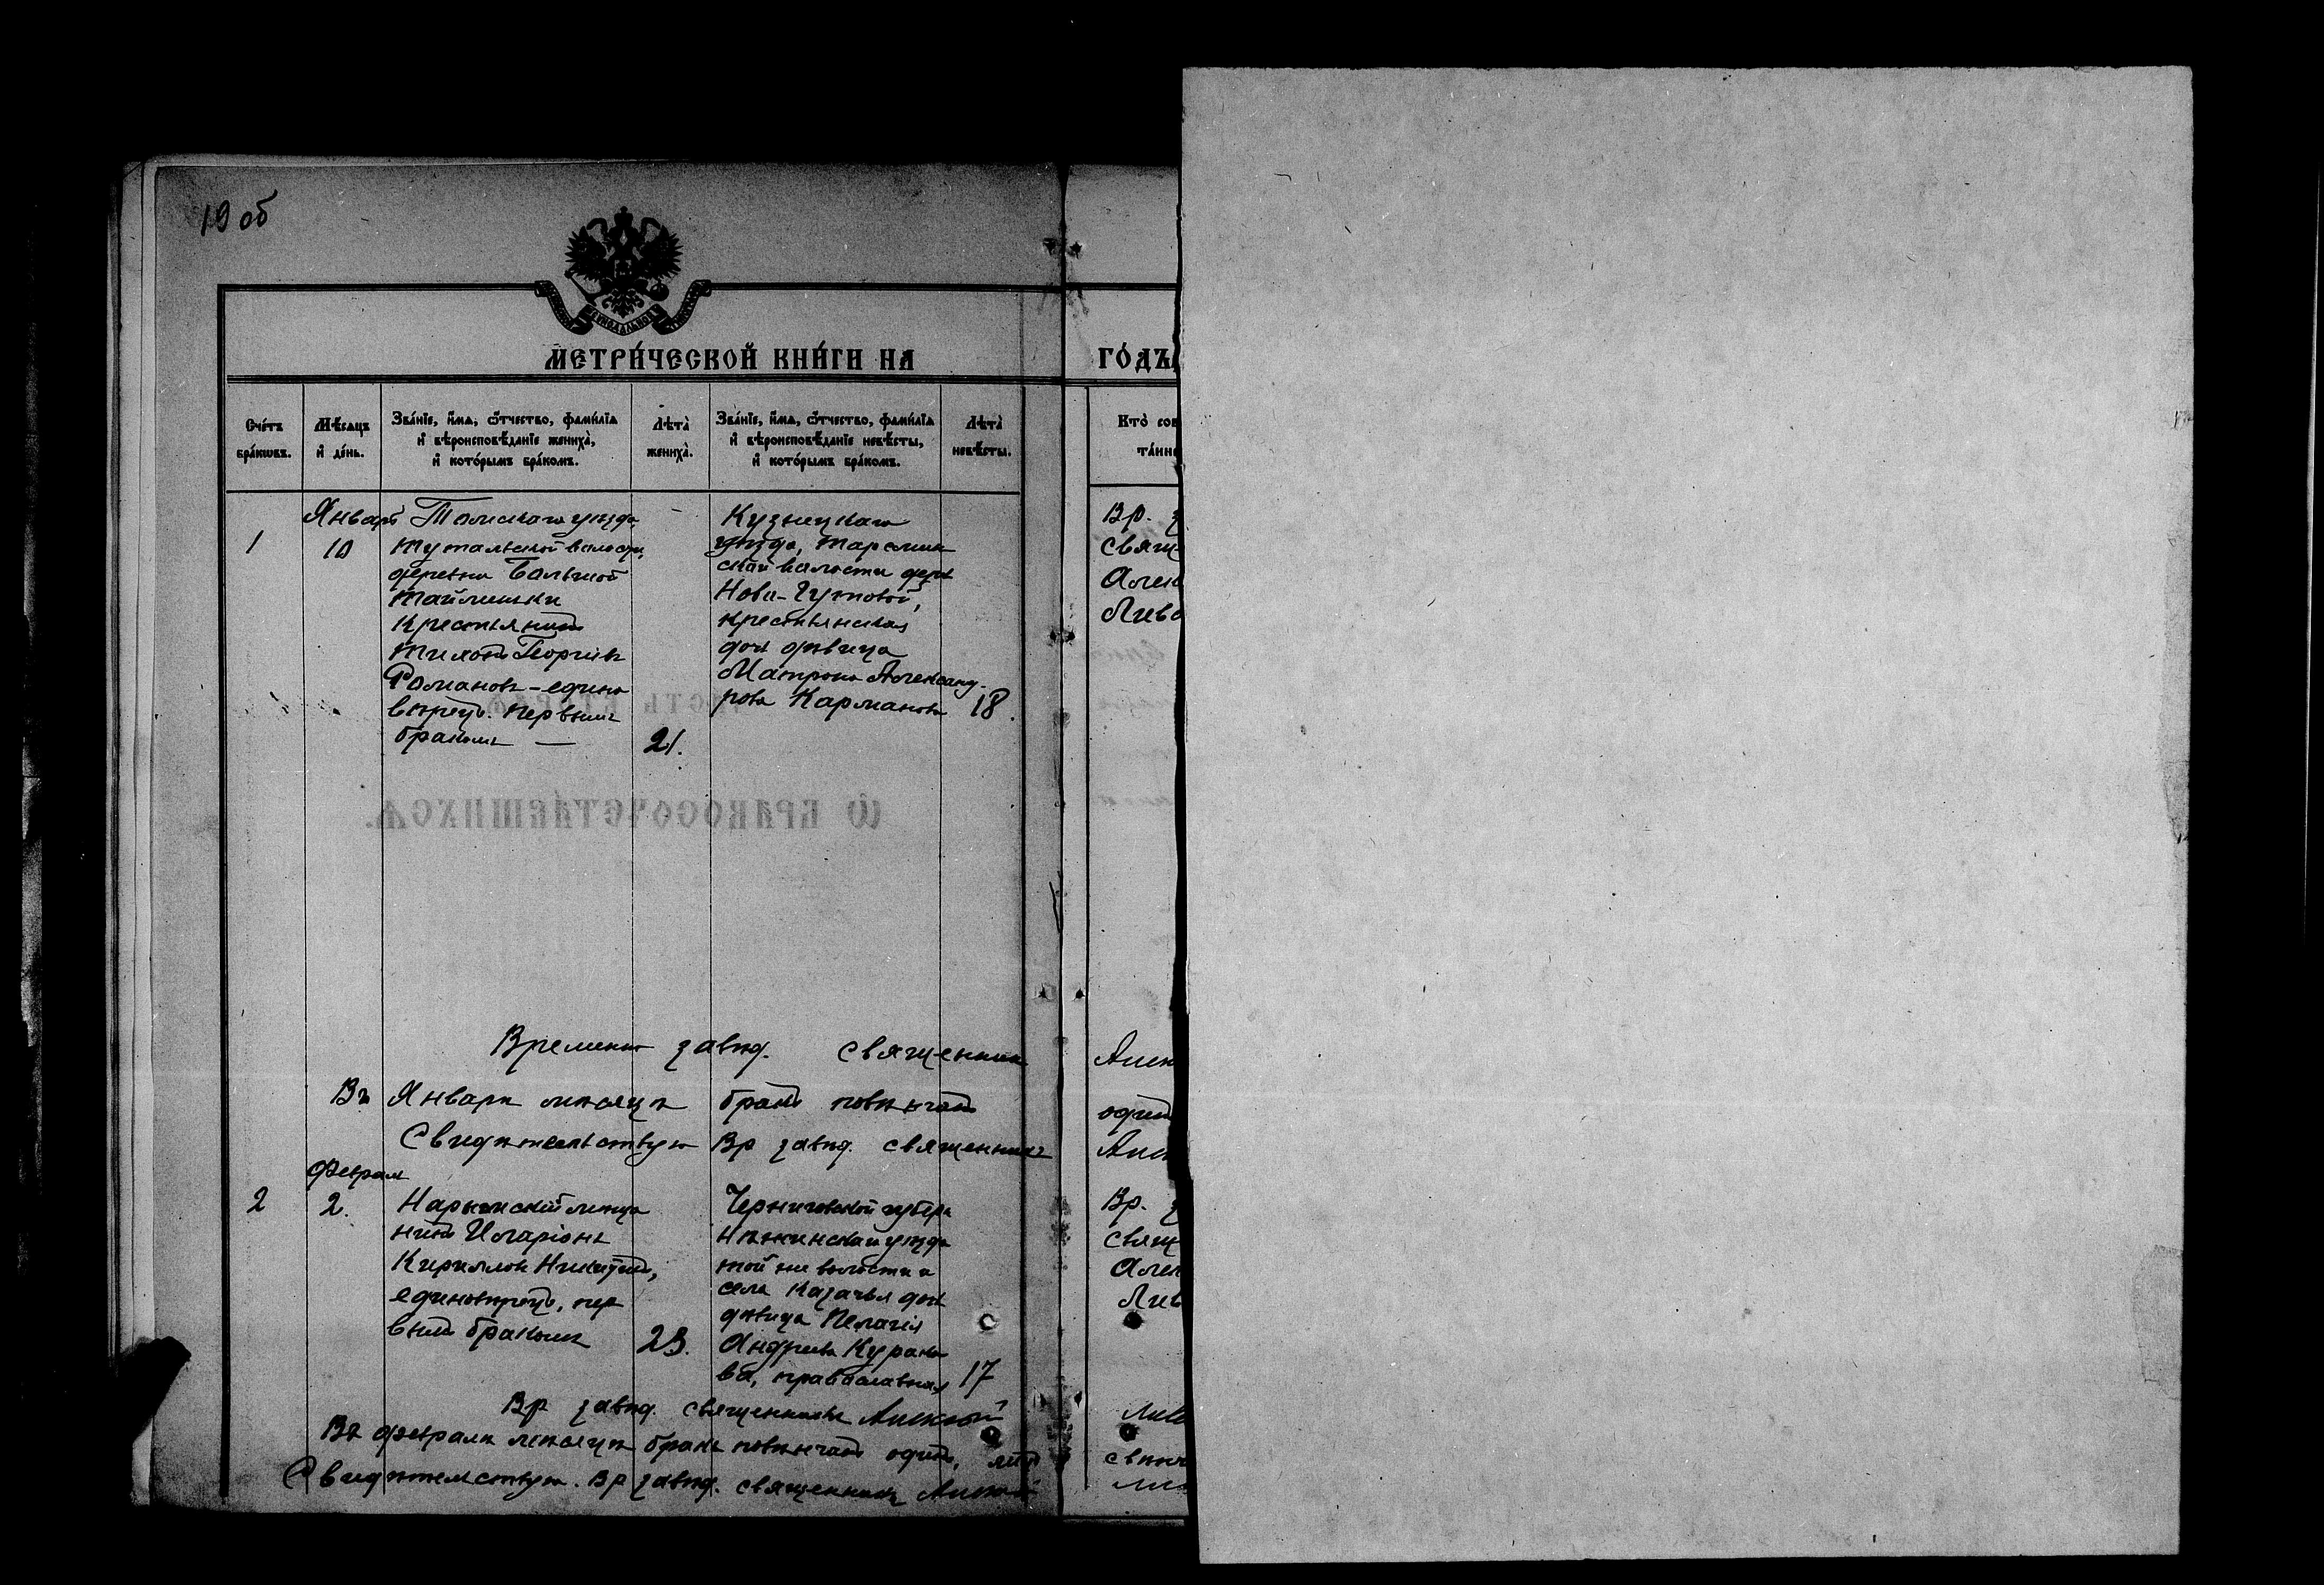 19 об
МЕТРИ́ЧЕСКОЙ КНИ́ГИ НА
ГО́ДЪ
Сче́тъ бра́кωвъ.
Мѣ́сяцъ и҆ де́нь.
Зва́нїе, и҆́мѧ, ѻ҆́тчество, фами́лїѧ и҆ вѣроисповѣ́данїе жениха̀, и҆ кото́рымъ бра́комъ.
Лѣта̀ жениха̀.
Зва́нїе, и҆́мѧ, ѻ҆́тчество, фами́лїѧ и҆ вѣроисповѣ́данїе невѣ́сты, и҆ кото́рымъ бра́комъ.
Лѣта̀ невѣ́сты.
Кто̀ сов
та́ин
1
Январь
10
Томскаго уѣзда
Тутальской волости,
деревни Большой
Крестьянинъ
Тихонъ Георгіевъ
Романовъ - едино
вѣрецъ. первымъ
бракомъ —
21.
Кузнецкаго
уѣзда, Тарсмин
ской волости дер
Ново-Гутовой,
крестьянская
дочь дѣвица
Матрона Александ-
рова Карманова
18.
Вр. з
свящ
Алек
Ливо
Временно завѣд. священникъ
Алек
Въ Январѣ мѣсяцѣ бракъ повѣнчанъ
один
Свидѣтельствую Вр завѣд. священникъ
Алек
2
Феврал
2.
Нарымскій мѣща
нинъ Иларіонъ
Кирилловъ Никитинъ,
единовѣрецъ, пер
вымъ бракомъ
23.
Черниговской губерн
Нѣжинскаго уѣзда
той же волости и
села Казачья дочь
дѣвица Пелагія
Андреева Курако
ва, православная
17
Вр. з
свящ
Алек
Лив
Вр завѣд. священникъ Алексѣй
Ливо
Въ февралѣ мѣсяцѣ бракъ повѣнчанъ одинъ,
свидѣ
Свидѣтельствую. Вр завѣд. священникъ Алексѣй
Ли